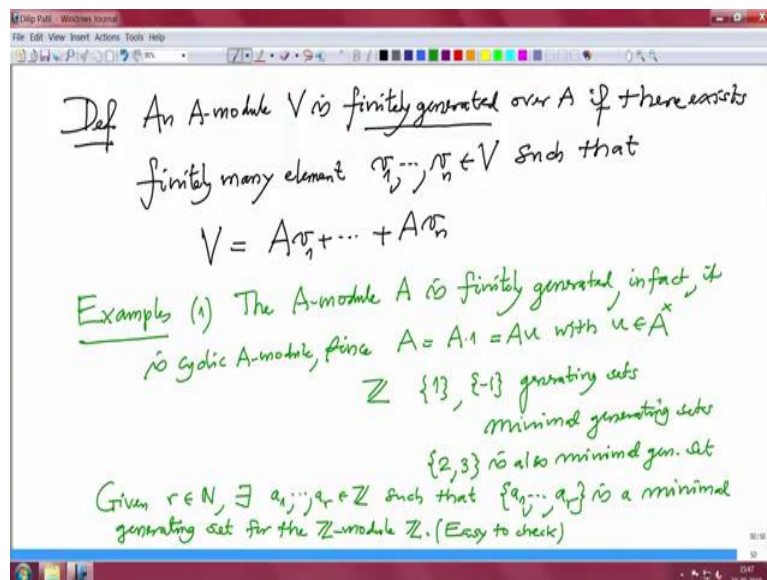 Dilip Patil - Windows Journal
File Edit View Insert Actions Tools Help
Def An A-module V is finitely generated over A if there exists
finitely many element v₁, ..., vₙ ∈ V such that
V = Av₁ + ... + Avₙ
Examples (1) The A-module A is finitely generated, infact, it
is cyclic A-module, since A = A·1 = Au with u ∈ A^×
ℤ {1}, {-1} generating sets
minimal generating sets
{2,3} is also minimal gen. set
Given r ∈ N, ∃ a₁, ..., aᵣ ∈ ℤ such that {a₁, ..., aᵣ} is a minimal
generating set for the ℤ-module ℤ. (Easy to check)
50
15:47